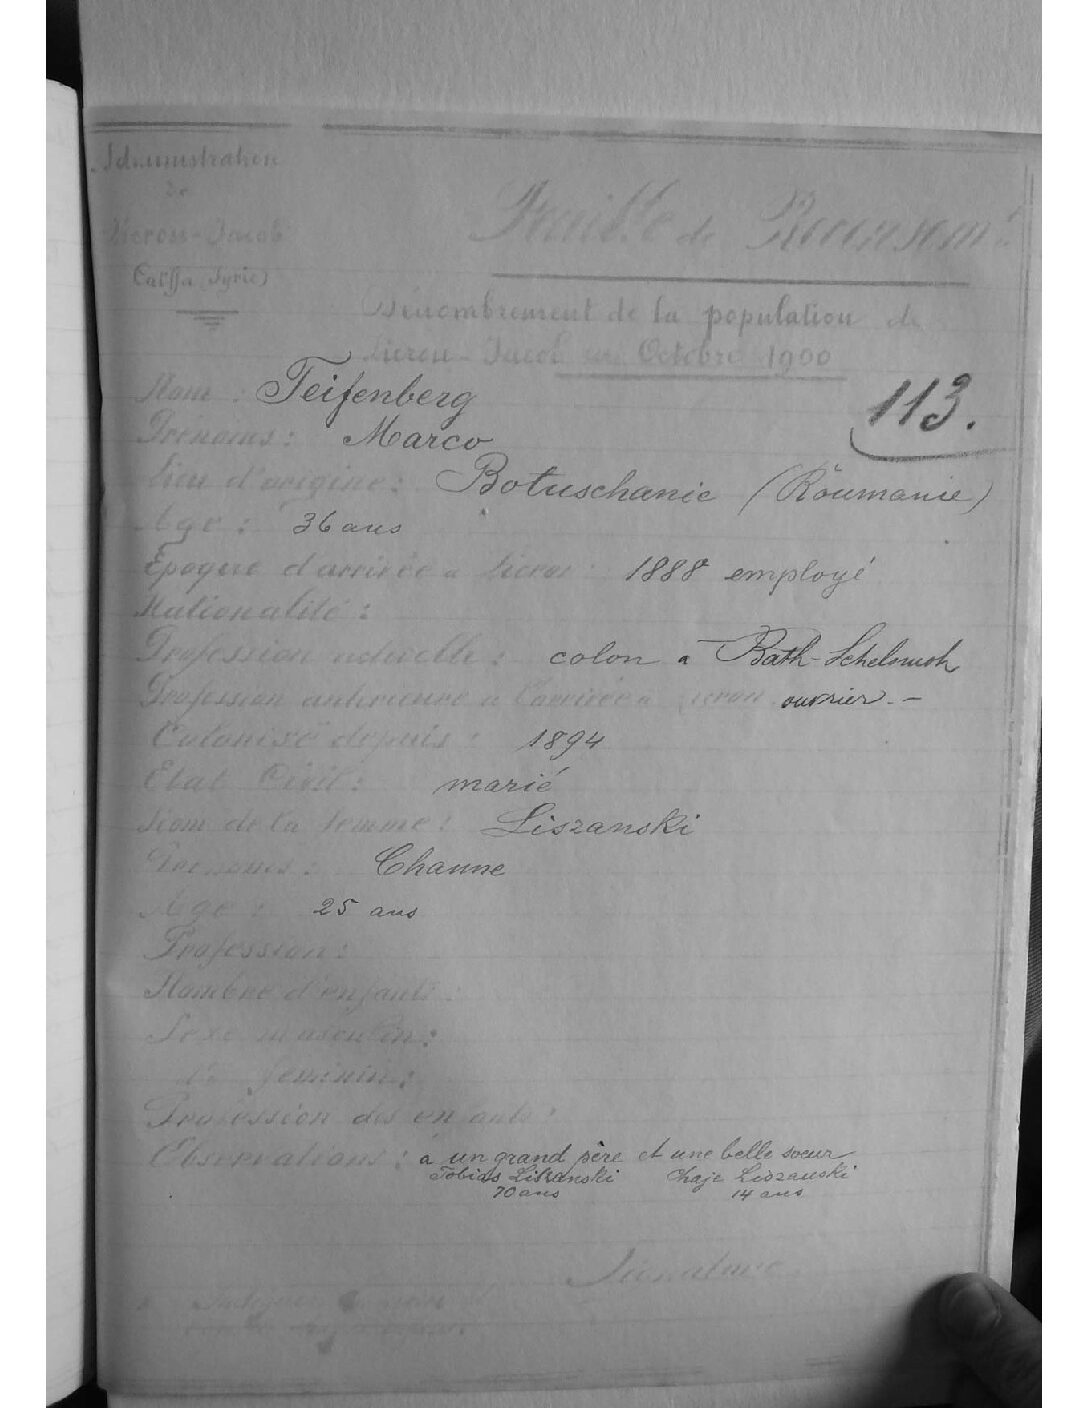 Administration
de
Zicron-Jacob
Caïffa (Syrie)
Feuille de Recensemt
Dénombrement de la population de
Zicron-Jacob en Octobre 1900
113.
Nom : Teifenberg
Prénoms : Marco
Lieu d'origine : Botuschanie (Roumanie)
Age : 36 ans
Epoque d'arrivée à Zicron : 1888 employé
Nationalité :
Profession actuelle : colon a Bath-Schelomoh
Profession antérieure à l'arrivée à Zicron ouvrier. -
Colonisé depuis : 1894
Etat Civil : marié
Nom de la femme : Liszanski
Prénoms : Channe
Age : 25 ans
Profession :
Nombre d'enfants :
Sexe masculin :
do feminin :
Profession des enfants :
Observations : à un grand père et une belle soeur
Tobias Liszanski Chaje Liszanski
70 ans 14 ans
Signature